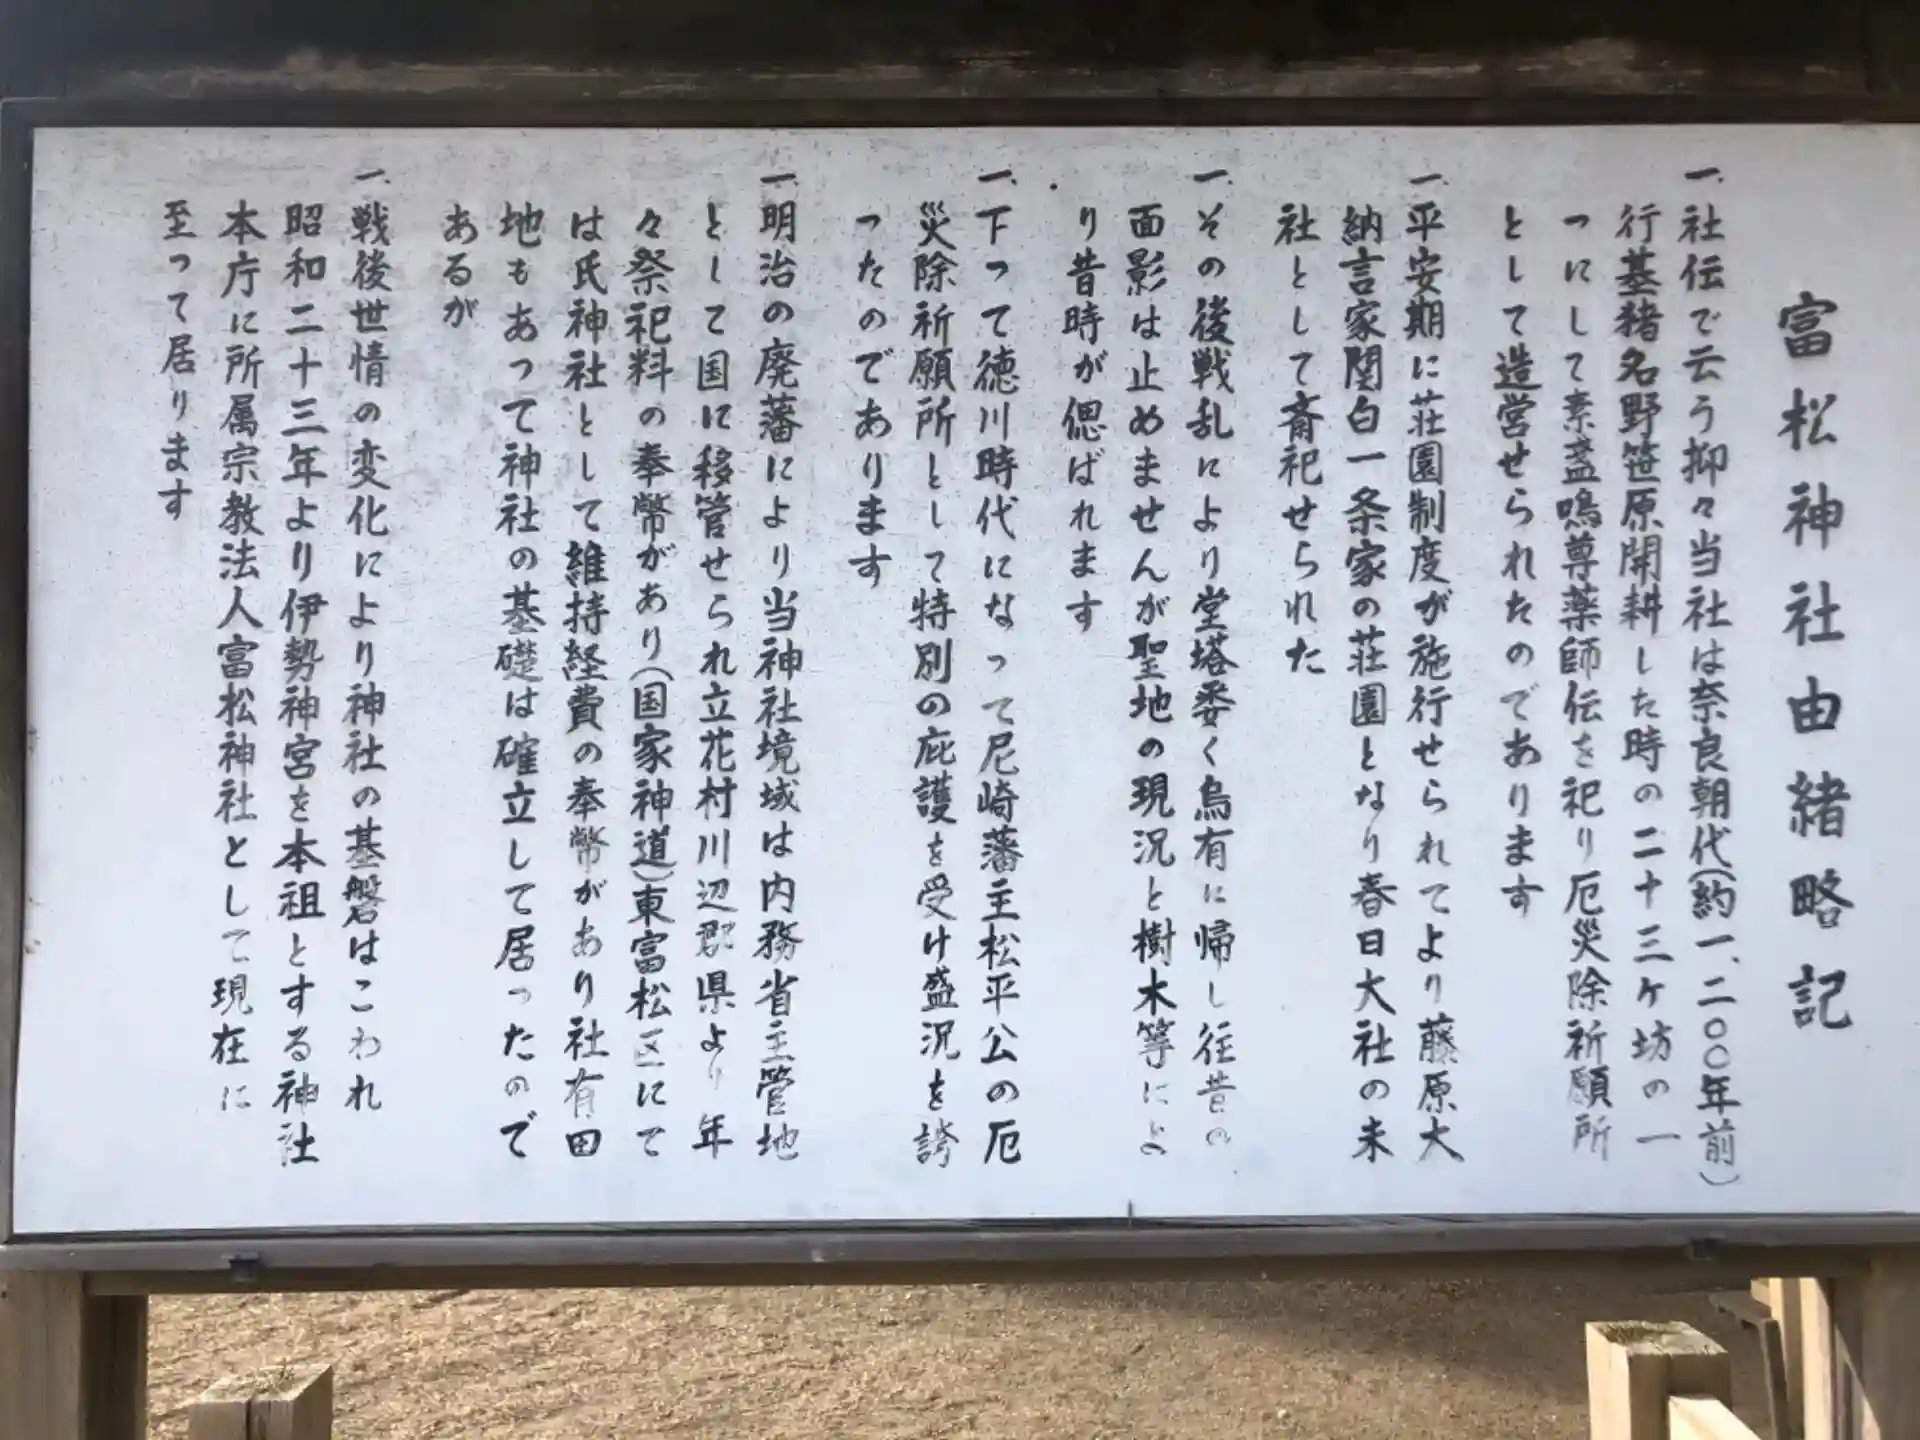 富松神社由緒略記
一、社伝で云う抑々当社は奈良朝代(約一、二〇〇年前)
行基猪名野笹原開耕した時の二十三ケ坊の一
つにして素盞嗚尊薬師伝を祀り厄災除祈願所
として造営せられたのであります
一、平安期に荘園制度が施行せられてより藤原大
納言家関白一条家の荘園となり春日大社の末
社として斎祀せられた
一、その後戦乱により堂塔悉く烏有に帰し往昔の
面影は止めませんが聖地の現況と樹木等によ
り昔時が偲ばれます
一、下って徳川時代になって尼崎藩主松平公の厄
災除祈願所として特別の庇護を受け盛況を誇
ったのであります
一、明治の廃藩により当神社境域は内務省主管地
として国に移管せられ立花村川辺郡県より年
々祭祀料の奉幣があり(国家神道)東富松区にて
は氏神社として維持経費の奉幣があり社有田
地もあって神社の基礎は確立して居ったので
あるが
一、戦後世情の変化により神社の基盤はこわれ
昭和二十三年より伊勢神宮を本祖とする神社
本庁に所属宗教法人富松神社として現在に
至って居ります